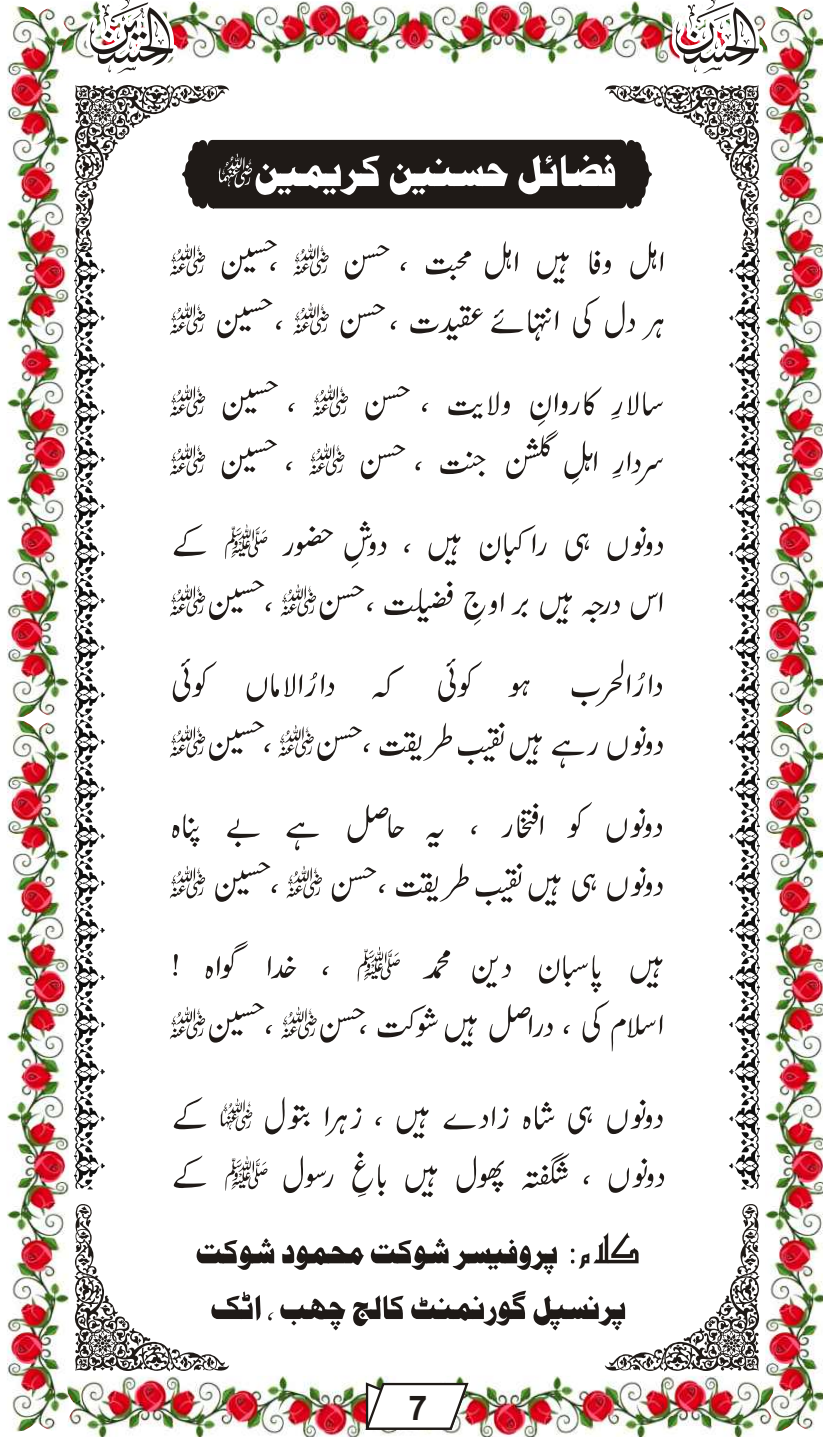 الحسنین الحسنین
فضائل حسنین کریمین رضی اللہ عنہما
اہل وفا ہیں اہل محبت ، حسن رضی اللہ عنہ ،حسین رضی اللہ عنہ
ہر دل کی انتہائے عقیدت ،حسن رضی اللہ عنہ ،حسین رضی اللہ عنہ
سالارِ کاروانِ ولایت ، حسن رضی اللہ عنہ ، حسین رضی اللہ عنہ
سردارِ اہلِ گلشن جنت ، حسن رضی اللہ عنہ ، حسین رضی اللہ عنہ
دونوں ہی راکبان ہیں ، دوشِ حضور صلی اللہ علیہ وسلم کے
اس درجہ ہیں بر اوجِ فضیلت ،حسن رضی اللہ عنہ ،حسین رضی اللہ عنہ
دارُالحرب ہو کوئی کہ دارُالاماں کوئی
دونوں رہے ہیں نقیب طریقت ،حسن رضی اللہ عنہ ،حسین رضی اللہ عنہ
دونوں کو افتخار ، یہ حاصل ہے بے پناہ
دونوں ہی ہیں نقیب طریقت ،حسن رضی اللہ عنہ ،حسین رضی اللہ عنہ
ہیں پاسبان دین محمد صلی اللہ علیہ وسلم ، خدا گواہ !
اسلام کی ، دراصل ہیں شوکت ،حسن رضی اللہ عنہ ،حسین رضی اللہ عنہ
دونوں ہی شاہ زادے ہیں ، زہرا بتول رضی اللہ عنہا کے
دونوں ، شگفتہ پھول ہیں باغِ رسول صلی اللہ علیہ وسلم کے
کلام: پروفیسر شوکت محمود شوکت
پرنسپل گورنمنٹ کالج چھب ، اٹک
7